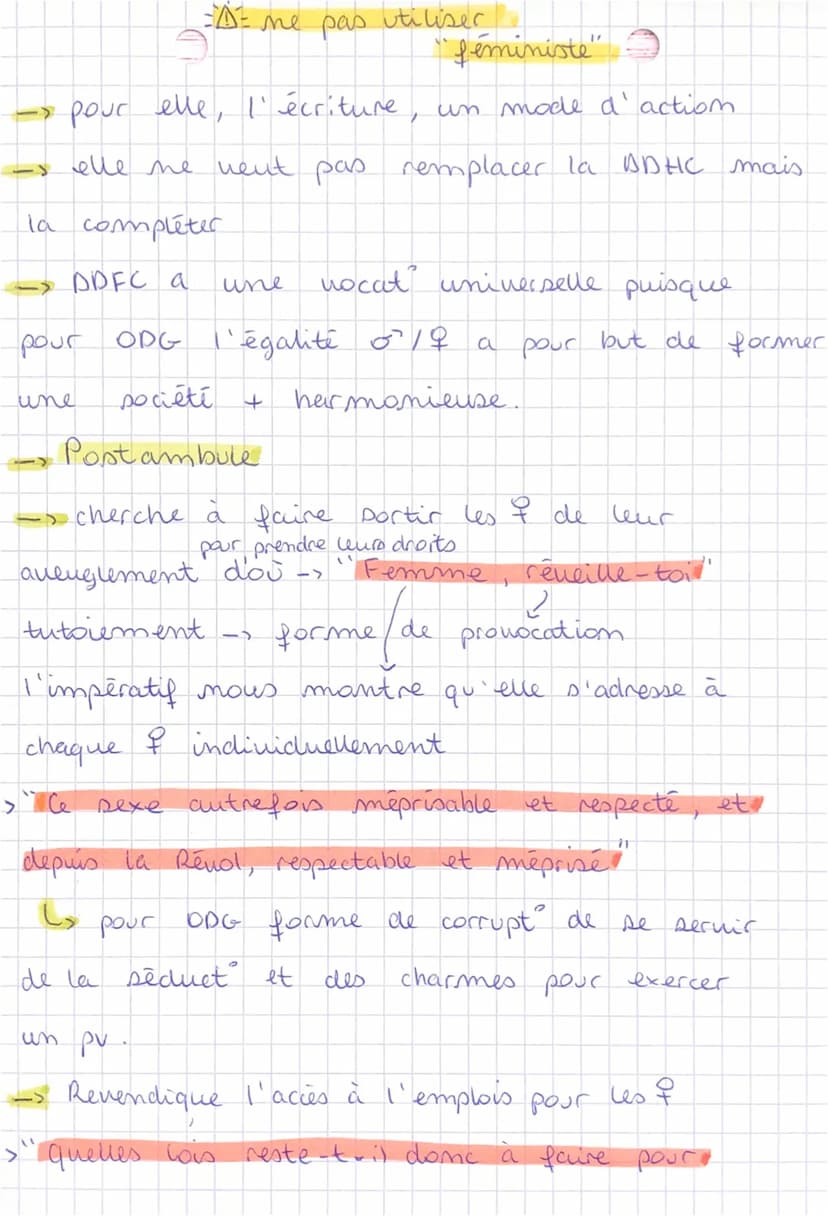 =⚠= ne pas utiliser
"féministe"
-> pour elle, l'écriture, un mode d'action
-> elle ne veut pas remplacer la DDHC mais
la compléter
-> DDFC a une vocat° universelle puisque
pour ODG l'égalité ♂/♀ a pour but de former
une société + harmonieuse.
-> Postambule
-> cherche à faire sortir les ♀ de leur
pour prendre leurs droits
aveuglement d'où -> "Femme, réveille-toi"
tutoiement -> forme de provocation
l'impératif nous montre qu'elle s'adresse à
chaque ♀ individuellement
>"Ce sexe autrefois méprisable et respecté, et
depuis la Révol, respectable et méprisé"
↳ pour ODG forme de corrupt° de se servir
de la séduct° et des charmes pour exercer
un pv.
-> Revendique l'accès à l'emplois pour les ♀
>"quelles lois reste-t-il donc à faire pour